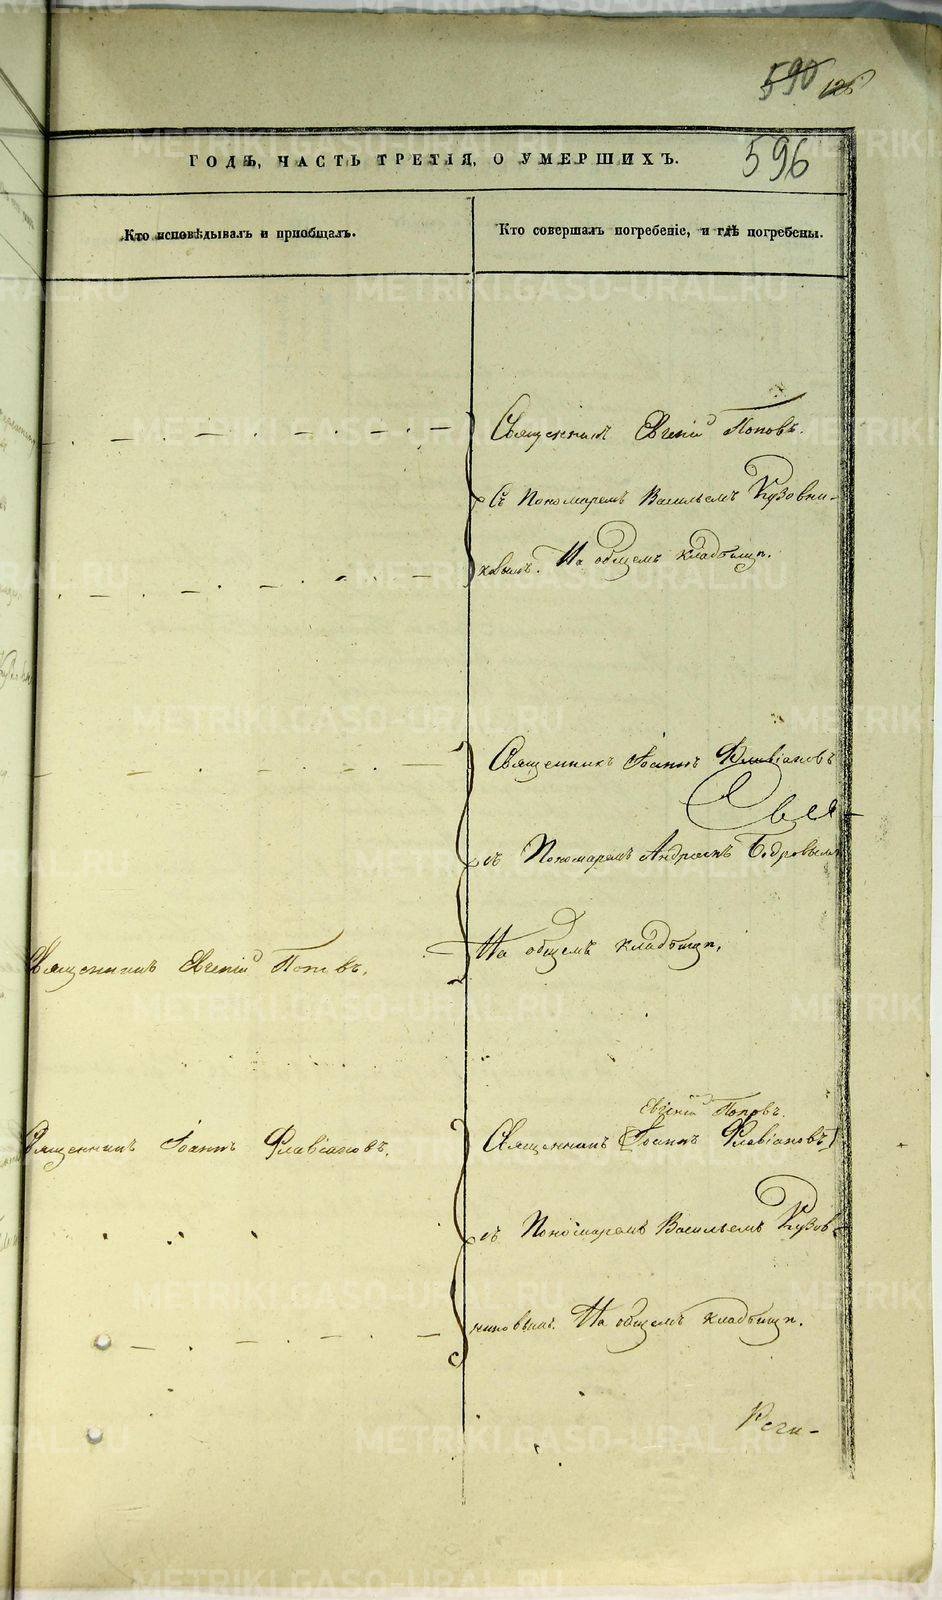 590 126
596
ГОДѢ, ЧАСТЬ ТРЕТІЯ, О УМЕРШИХЪ.
Кто исповѣдывалъ и пріобщалъ.
Кто совершалъ погребеніе, и гдѣ погребены.
Священникъ Евгеній Поповъ.
Съ Пономаремъ Васильемъ Кузовни-
ковымъ. На общемъ кладбищѣ.
Священникъ Іоаннъ Флавіановъ
Свя-
съ Пономаремъ Андреемъ Бодровымъ
На общемъ кладбищѣ.
Священникъ Евгеній Поповъ.
Евгеній Поповъ.
Священникъ Іоаннъ Флавіановъ.
Священникъ (Іоаннъ Флавіановъ)
съ Пономаремъ Васильемъ Кузов-
никовымъ. На общемъ кладбищѣ.
METRIKI.GASO-URAL.RU